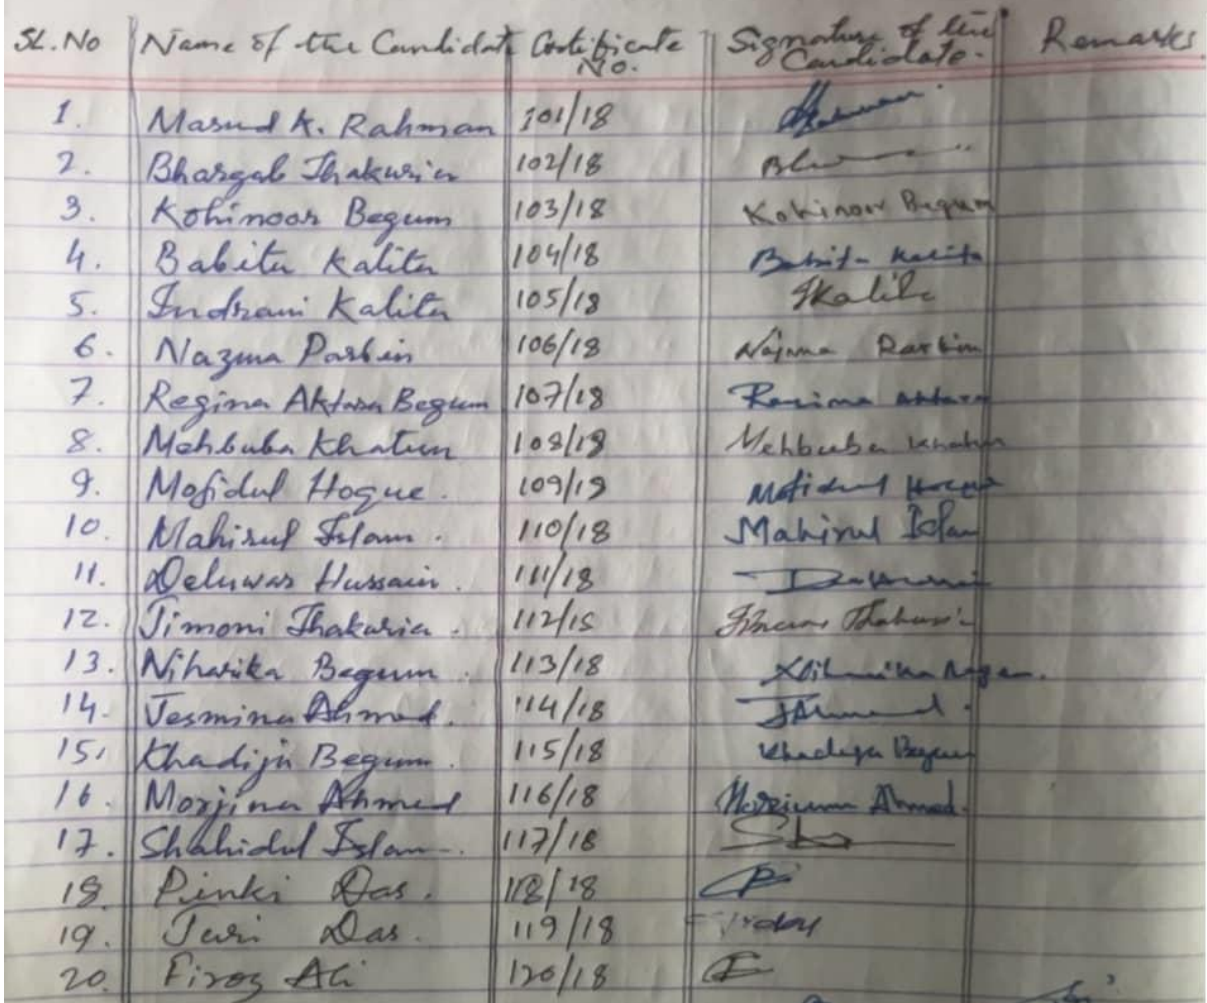 SL. No Name of the Candidate Certificate No. Signature of the Candidate. Remarks
1. Masud K. Rahman 101/18
2. Bhargab Thakuria 102/18
3. Kohinoor Begum 103/18 Kohinoor Begum
4. Babita Kalita 104/18 Babita Kalita
5. Indrani Kalita 105/18 IKalita
6. Nazma Parbin 106/18 Najma Parbin
7. Regina Aktara Begum 107/18 Aktara
8. Mehbuba Khatun 108/18 Mehbuba Khatun
9. Mofidul Hoque. 109/18 Mofidul Hoque
10. Mahirul Islam. 110/18 Mahirul Islam
11. Deluwar Hussain. 111/18
12. Jimoni Thakuria. 112/18
13. Niharika Begum. 113/18 Niharika Begum.
14. Jesmina Ahmed. 114/18 JAhmed.
15. Khadija Begum. 115/18 Khadija Begum
16. Morjina Ahmed 116/18 Ahmed.
17. Shahidul Islam. 117/18
18. Pinki Das. 118/18
19. Juri Das. 119/18
20. Firoz Ali 120/18